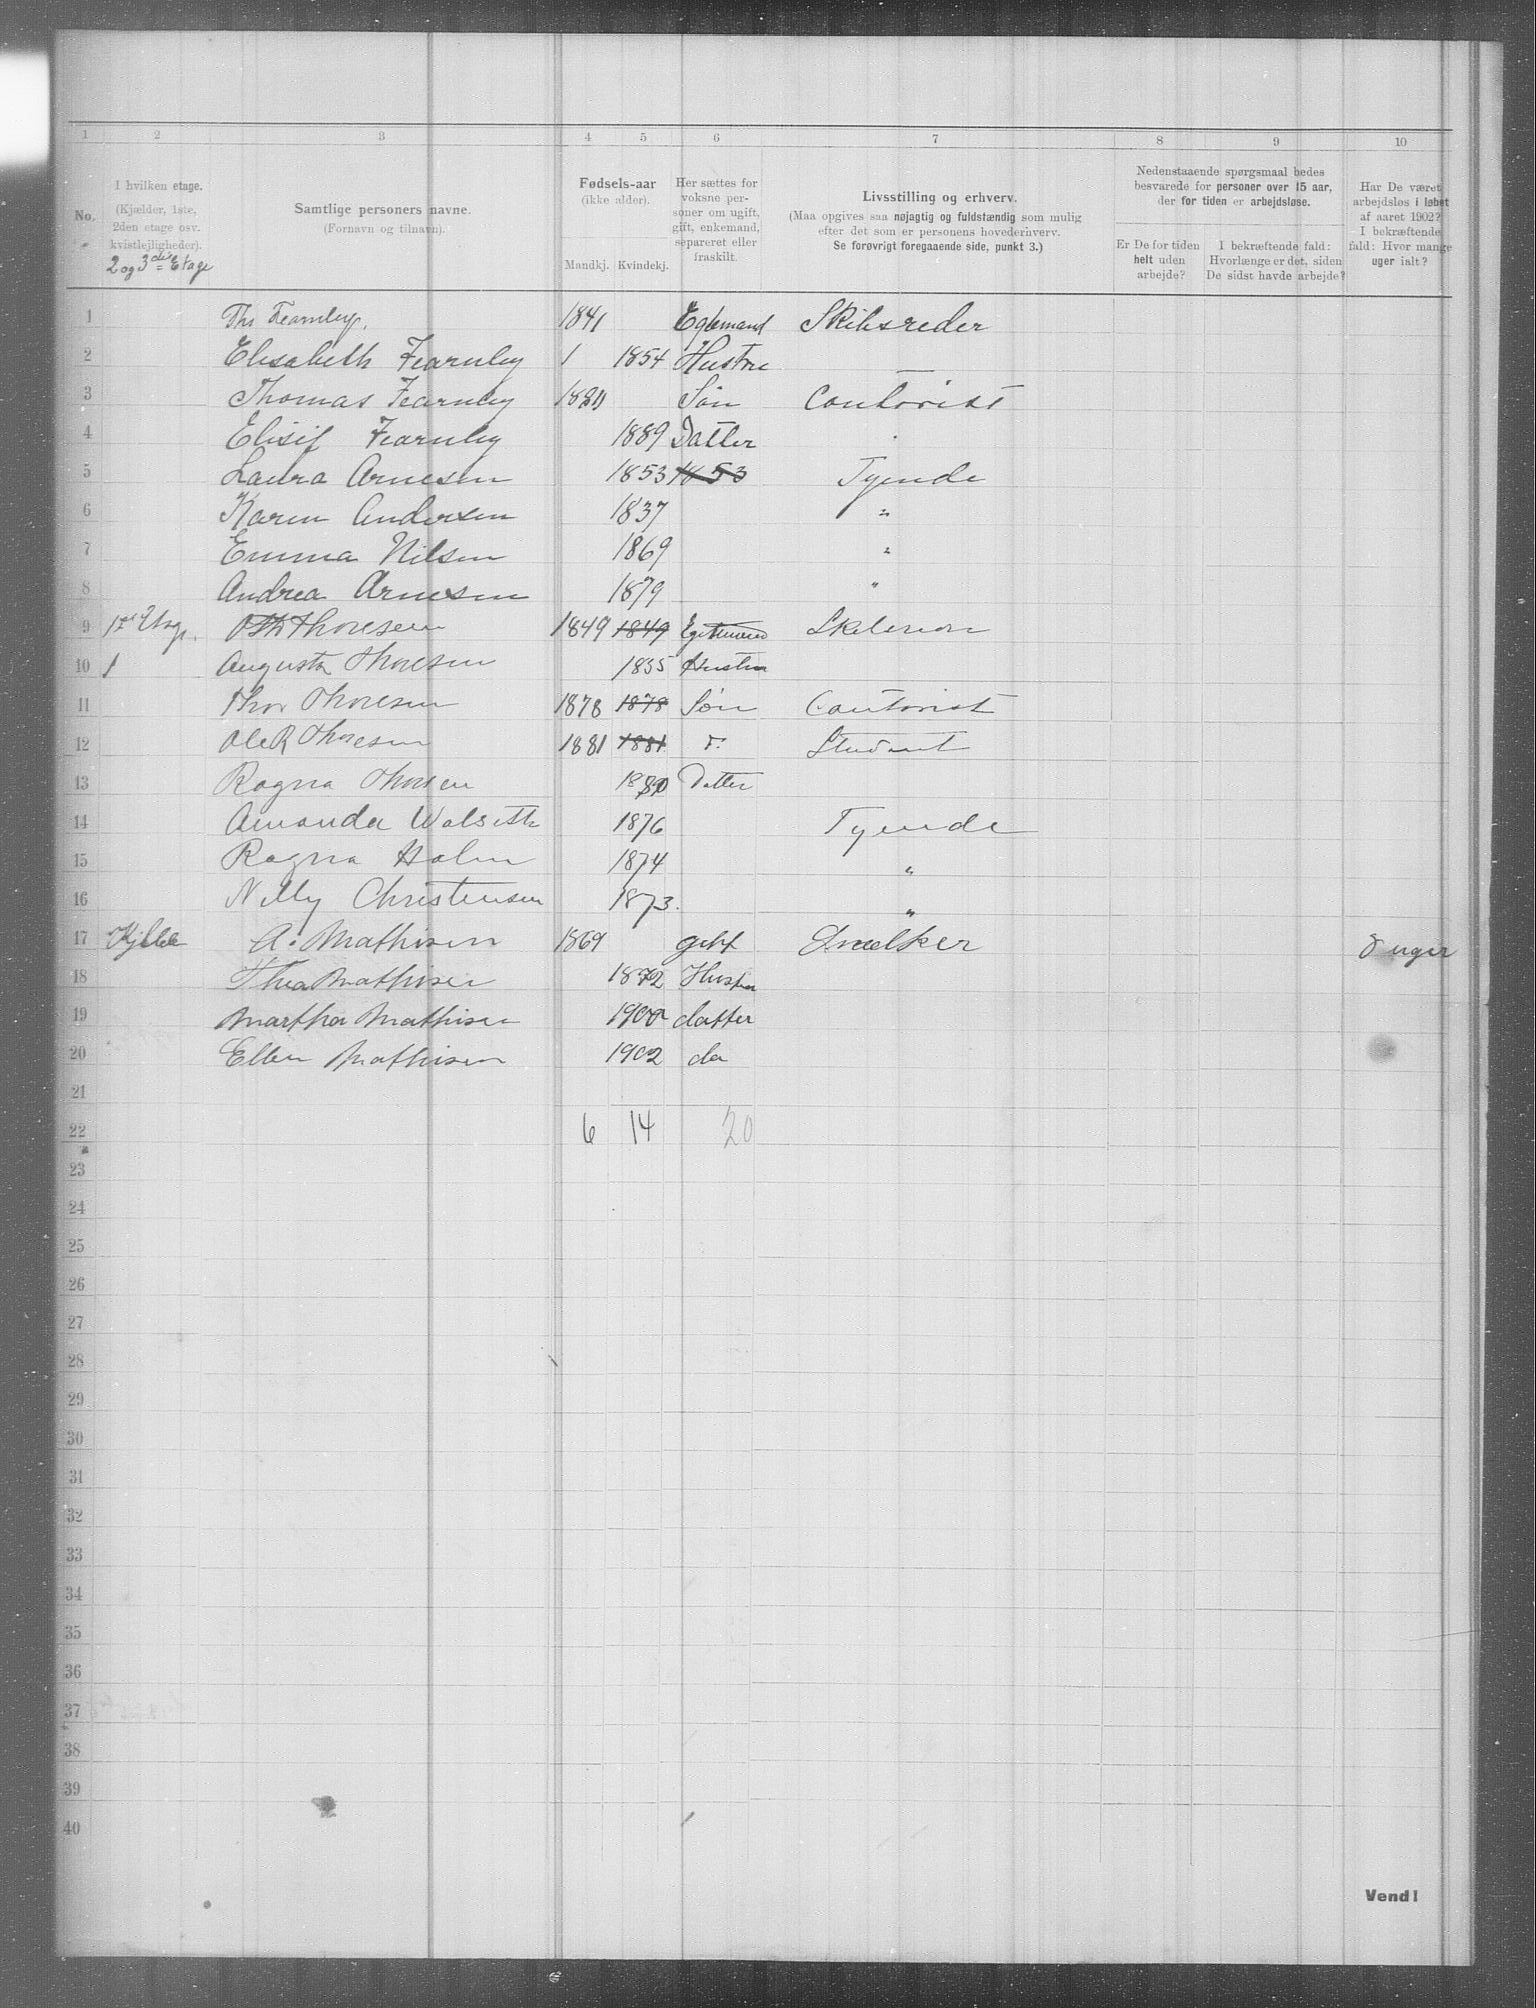 1 2 3 4 5 6 7 8 9 10
No.
I hvilken etage.
(Kjælder, 1ste,
2den etage osv.
kvistlejligheder).
2 og 3die Etage
Samtlige personers navne.
(Fornavn og tilnavn).
Fødsels-aar
(ikke alder).
Mandkj. Kvindekj.
Her sættes for
voksne per-
soner om ugift,
gift, enkemand,
separeret eller
fraskilt.
Livsstilling og erhverv.
(Maa opgives saa nøjagtig og fuldstændig som mulig
efter det som er personens hovederhverv.
Se forøvrigt foregaaende side, punkt 3.)
Nedenstaaende spørgsmaal bedes
besvarede for personer over 15 aar,
der for tiden er arbejdsløse.
Er De for tiden
helt uden
arbejde?
I bekræftende fald:
Hvorlænge er det, siden
De sidst havde arbejde?
Har De været
arbejdsløs i løbet
af aaret 1902?
I bekræftende
fald: Hvor mange
uger ialt?
1 Ths Fearnley. 1841 Egtemand Skibsreder
2 Elisabeth Fearnley 1 1854 Hustru
3 Thomas Fearnley 1880 Søn Contorist
4 Elisif Fearnley 1889 Datter
5 Laura Arnesen 1853 1853 Tyende
6 Karen Andersen 1837 "
7 Emma Nilsen 1869 "
8 Andrea Arnesen 1879 "
9 1ste Etage. Thoresen 1849 1849 Egtemand
10 1 Augusta Thoresen 1855 Hustru
11 Thor Thoresen 1878 1878 Søn Contorist
12 Ole R Thoresen 1881 1881 Student
13 Ragna Thoresen 1880 Datter
14 Amanda Walseth 1876 Tyende
15 Ragna Holm 1874 "
16 Nelly Christensen 1873. "
17 Kjelder A. Mathisen 1869 gift Snedker 8 uger
18 Thea Mathisen 1872 Hustru
19 Martha Mathisen 1900 datter
20 Ellen Mathisen 1902 do
21
22 6 14 20
23
24
25
26
27
28
29
30
31
32
33
34
35
36
37
38
39
40
Vend!